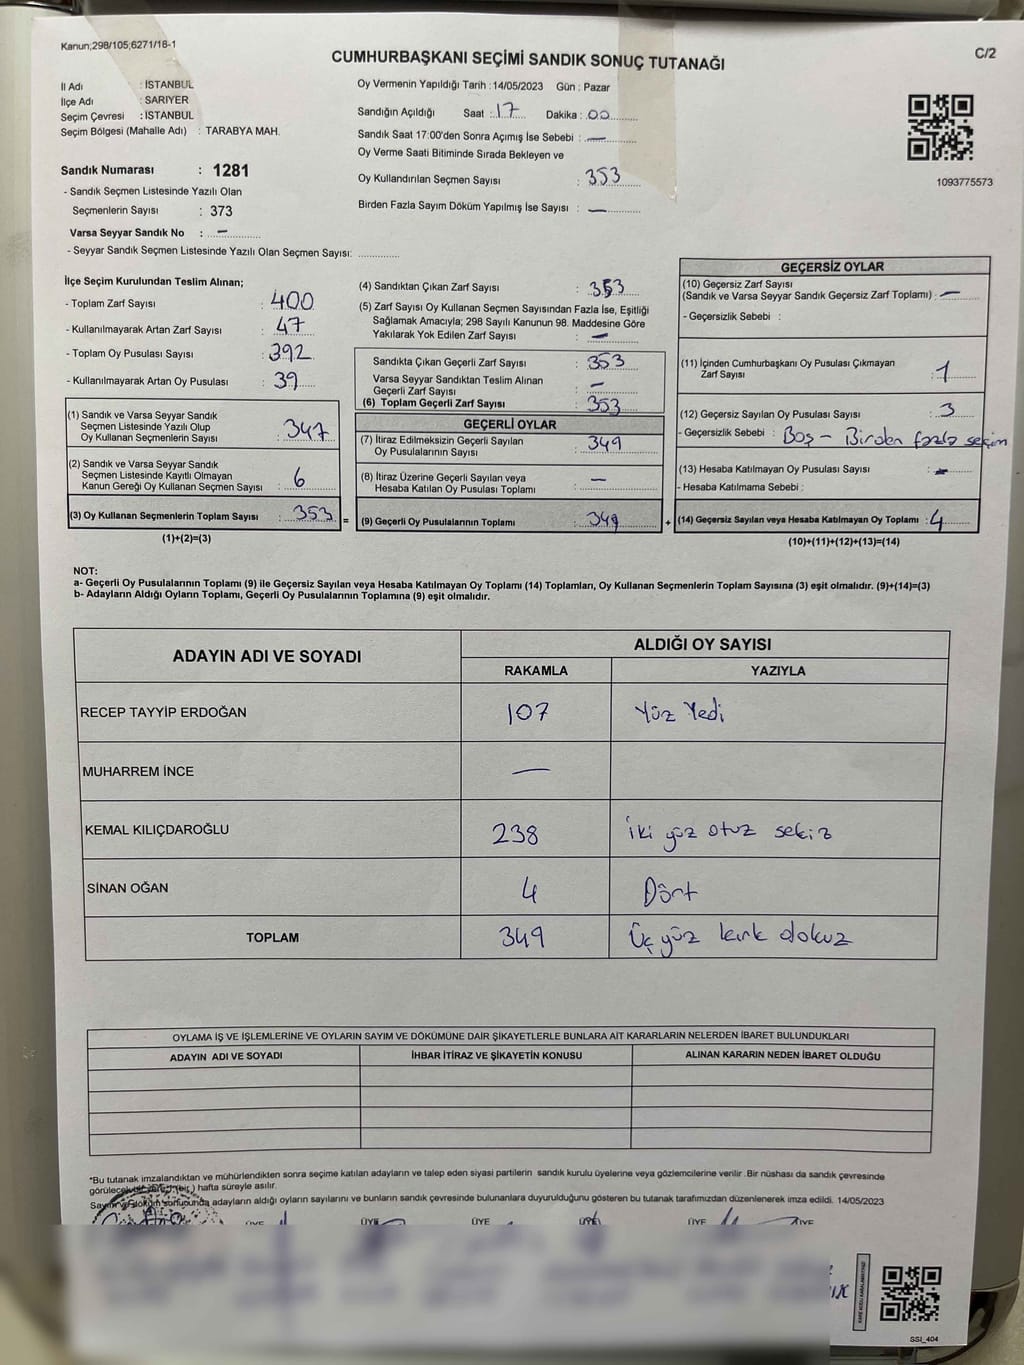 Kanun;298/105;6271/16-1
C/2
CUMHURBAŞKANI SEÇİMİ SANDIK SONUÇ TUTANAĞI
İl Adı : İSTANBUL
İlçe Adı : SARIYER
Seçim Çevresi : İSTANBUL
Seçim Bölgesi (Mahalle Adı) : TARABYA MAH.
Sandık Numarası : 1281
- Sandık Seçmen Listesinde Yazılı Olan
Seçmenlerin Sayısı : 373
Varsa Seyyar Sandık No : —
- Seyyar Sandık Seçmen Listesinde Yazılı Olan Seçmen Sayısı:
Oy Vermenin Yapıldığı Tarih : 14/05/2023 Gün : Pazar
Sandığın Açıldığı Saat : 17 Dakika : 00
Sandık Saat 17:00'den Sonra Açımış İse Sebebi : —
Oy Verme Saati Bitiminde Sırada Bekleyen ve
Oy Kullandırılan Seçmen Sayısı : 353
Birden Fazla Sayım Döküm Yapılmış İse Sayısı : —
1093775573
İlçe Seçim Kurulundan Teslim Alınan;
- Toplam Zarf Sayısı : 400
- Kullanılmayarak Artan Zarf Sayısı : 47
- Toplam Oy Pusulası Sayısı : 392
- Kullanılmayarak Artan Oy Pusulası : 39
(1) Sandık ve Varsa Seyyar Sandık
Seçmen Listesinde Yazılı Olup
Oy Kullanan Seçmenlerin Sayısı : 347
(2) Sandık ve Varsa Seyyar Sandık
Seçmen Listesinde Kayıtlı Olmayan
Kanun Gereği Oy Kullanan Seçmen Sayısı : 6
(3) Oy Kullanan Seçmenlerin Toplam Sayısı : 353
(1)+(2)=(3)
=
(4) Sandıktan Çıkan Zarf Sayısı : 353
(5) Zarf Sayısı Oy Kullanan Seçmen Sayısından Fazla İse, Eşitliği
Sağlamak Amacıyla; 298 Sayılı Kanunun 98. Maddesine Göre
Yakılarak Yok Edilen Zarf Sayısı : —
Sandıkta Çıkan Geçerli Zarf Sayısı : 353
Varsa Seyyar Sandıktan Teslim Alınan
Geçerli Zarf Sayısı : —
(6) Toplam Geçerli Zarf Sayısı : 353
GEÇERLİ OYLAR
(7) İtiraz Edilmeksizin Geçerli Sayılan
Oy Pusulalarının Sayısı : 349
(8) İtiraz Üzerine Geçerli Sayılan veya
Hesaba Katılan Oy Pusulası Toplamı : —
(9) Geçerli Oy Pusulalarının Toplamı : 349
+
GEÇERSİZ OYLAR
(10) Geçersiz Zarf Sayısı
(Sandık ve Varsa Seyyar Sandık Geçersiz Zarf Toplamı) : —
- Geçersizlik Sebebi :
(11) İçinden Cumhurbaşkanı Oy Pusulası Çıkmayan
Zarf Sayısı : 1
(12) Geçersiz Sayılan Oy Pusulası Sayısı : 3
- Geçersizlik Sebebi : Boş - Birden fazla seçim
(13) Hesaba Katılmayan Oy Pusulası Sayısı : —
- Hesaba Katılmama Sebebi :
(14) Geçersiz Sayılan veya Hesaba Katılmayan Oy Toplamı : 4
(10)+(11)+(12)+(13)=(14)
NOT:
a- Geçerli Oy Pusulalarının Toplamı (9) ile Geçersiz Sayılan veya Hesaba Katılmayan Oy Toplamı (14) Toplamları, Oy Kullanan Seçmenlerin Toplam Sayısına (3) eşit olmalıdır. (9)+(14)=(3)
b- Adayların Aldığı Oyların Toplamı, Geçerli Oy Pusulalarının Toplamına (9) eşit olmalıdır.
ADAYIN ADI VE SOYADI ALDIĞI OY SAYISI
RAKAMLA YAZIYLA
RECEP TAYYİP ERDOĞAN 107 Yüz Yedi
MUHARREM İNCE —
KEMAL KILIÇDAROĞLU 238 iki yüz otuz sekiz
SİNAN OĞAN 4 Dört
TOPLAM 349 Üç yüz kırk dokuz
OYLAMA İŞ VE İŞLEMLERİNE VE OYLARIN SAYIM VE DÖKÜMÜNE DAİR ŞİKAYETLERLE BUNLARA AİT KARARLARIN NELERDEN İBARET BULUNDUKLARI
ADAYIN ADI VE SOYADI İHBAR İTİRAZ VE ŞİKAYETİN KONUSU ALINAN KARARIN NEDEN İBARET OLDUĞU
*Bu tutanak imzalandıktan ve mühürlendikten sonra seçime katılan adayların ve talep eden siyasi partilerin sandık kurulu üyelerine veya gözlemcilerine verilir .Bir nüshası da sandık çevresinde
hafta süreyle asılır.
sonucunda adayların aldığı oyların sayılarını ve bunların sandık çevresinde bulunanlara duyurulduğunu gösteren bu tutanak tarafımızdan düzenlenerek imza edildi. 14/05/2023
ÜYE ÜYE ÜYE ÜYE ÜYE ÜYE
SSİ_404